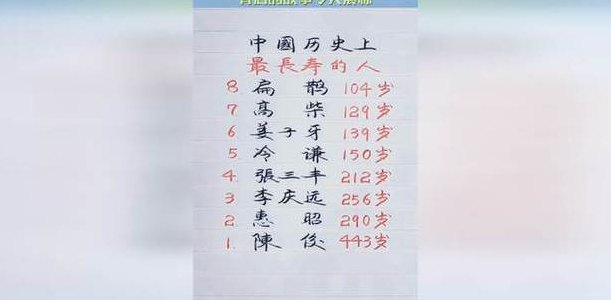 中國历史上
最長寿的人
8 扁鹊 104岁
7. 高柴 129岁
6 姜子牙 139岁
5 冷谦 150岁
4. 張三丰 212岁
3 李庆远 256岁
2. 惠昭 290岁
1. 陳俊 443岁